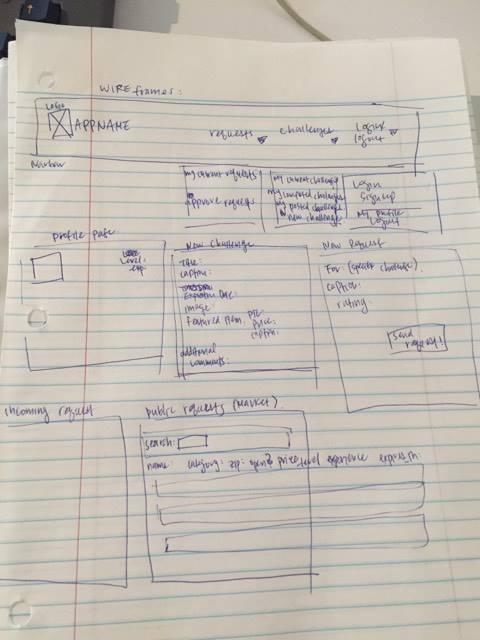 WIRE frames:
LOGO
APPNAME
requests
challenges
Login/
logout
Navbar
my current requests
approve requests
my current challenges
my completed challenges
my posted challenges
new challenge
Login
Sign up
My profile
Logout
Profile page
Level:
exp:
New Challenge
Title:
caption:
Expiration Date:
image:
featured item: pic:
price:
caption:
additional
comments:
New Request
For: (specific challenge)
caption:
rating:
Send
request!
Incoming request
Public requests (Market)
search:
name: category: exp: price: level experience expires in: